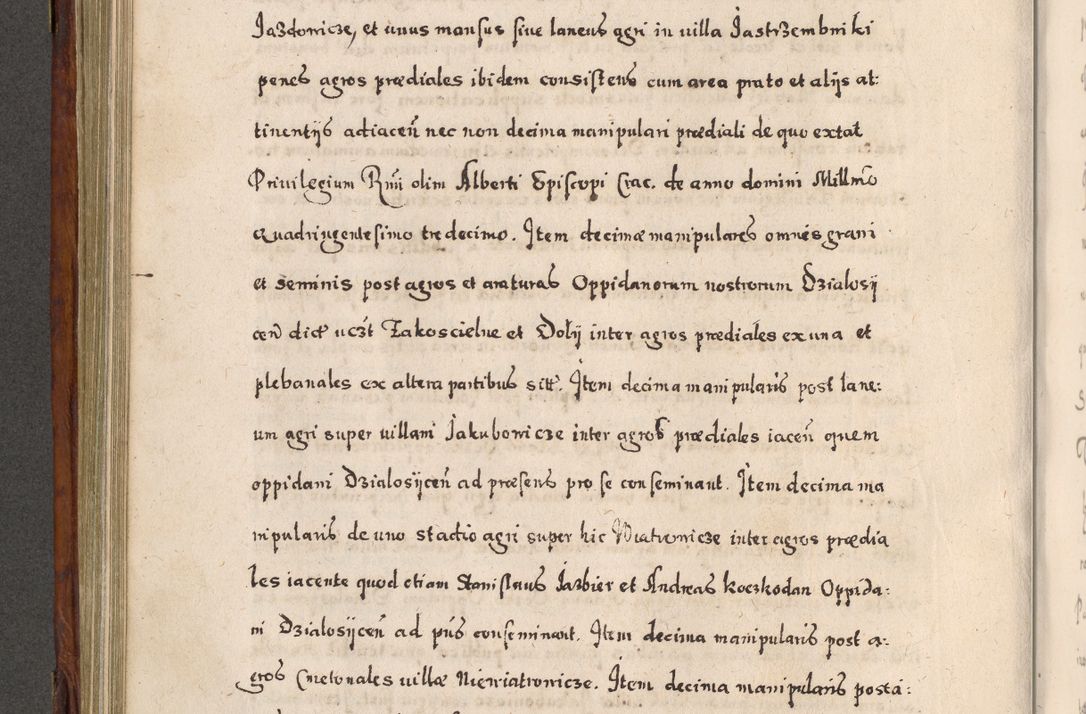 Jazdowicze, et unus mansus sive laneus agri in villa Jastrzembniki
penes agros prædiales ibidem consistens cum area prato et alijs at:
tinentijs adiaceñ nec non decima manipulari prædiali de quo extat
Privilegium Rmi olim Alberti Episcopi Crac. de anno domini Millmo
Quadringentesimo tredecimo. Item decimæ manipulares omnes grani
et seminis post agros et araturas Oppidanorum nostrorum Dzialosij
ceñ dict uczt Zakoscielne et Dolÿ inter agros prædiales ex una et
plebanales ex altera partibus sitt. Item decima manipularis post lane:
um agri super villam Jakubowicze inter agros prædiales iaceñ quem
oppidani Dzialosijceñ ad præsens pro se conseminant. Item decima ma
nipularis de uno stadio agri super hic Wiatrowicze inter agros prædia
les iacente quod etiam Stanislaus Jazbier et Andreas Koczkodan Oppida:
ni Dzialosijceñ ad pñs conseminant. Item decima manipularis post a:
gros Cmetonales villæ Niewiatrowicze. Item decima manipularis post a: